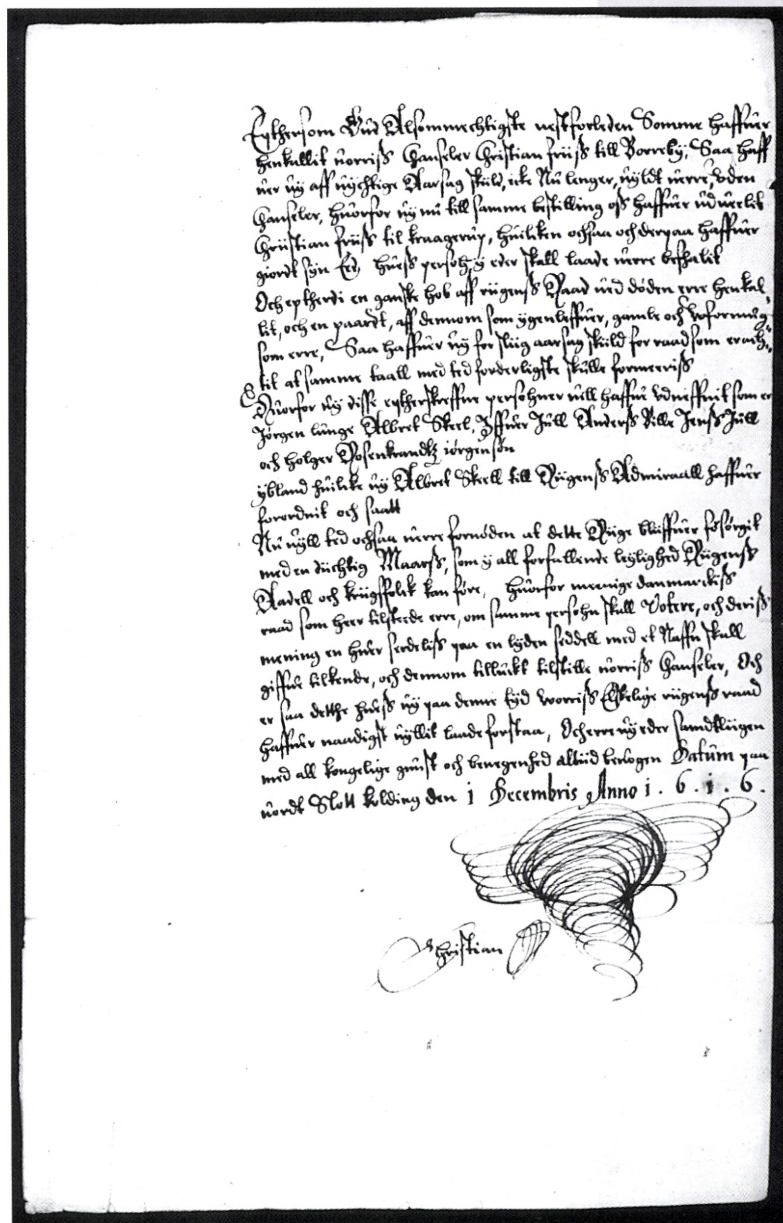 Epthersom Gud Alsommechtigste nest forleden Somme haffuer
henkallit uorriss Canseler Christian friiss till Borreby, Saa haff
uer uy aff uychtige Aarsag skuld, icke Nu lenger, uyldt uerre, uden
Canseler, huorfor uy nu till samme bestilling oss haffuer uduerlit
Christian friiss til kraagerup, huilcken ochsaa och derpaa haffuer
giordt syn Eed, huess persohn y eder skall laade uerre befhalit
Och eptherdi en ganske hob aff riigenss Raad ued døden erre henkal-
lit, och en paardt, aff dennom som ygenleffuer, gamle och uformug-
som erre, Saa haffuer uy for sliig aarsag skuld for raadsom eract-
tit at samme taall med ted forderligste skulle formeriss
Huorfor uy disse eptherskreffne persohner uill haffue udneffnit som er
Jørgen lunge Albret Skeel, Iffuer Jull Anderss Bille Jenss Juell
och holger Rosenkrandtz iørgensøn
ybland huilcke uy Albret Skeell till Riigenss Admiraall haffuer
forordnit och saatt
Nu uyll ted ochsaa uerre fornøden at dette Riige bliiffuer forsørgit
med en duchtig Maarsk, som y all forfallende leylighed Riigenss
Aadell och kriigsfolck kan føre, huorfor meenige danmarckiss
raad som heer tilstede erre, om samme persohn skall Votere, och deriss
mening en huer serdeliss paa en lyden seddell med et Naffn skall
giffue tilkende, och dennom tilluckt tilstille uorriss Canseler, Och
er saa detthe huess uy paa denne tyd worriss Elskelige riigenss raad
haffuer naadigst uyllit laade forstaa, Och erre uy eder samdtliigen
med all kongelige gunst och beuegenhed altiid beuogen Datum paa
uordt Slott kolding den i Decembris Anno i . 6 . i . 6 .
Christian